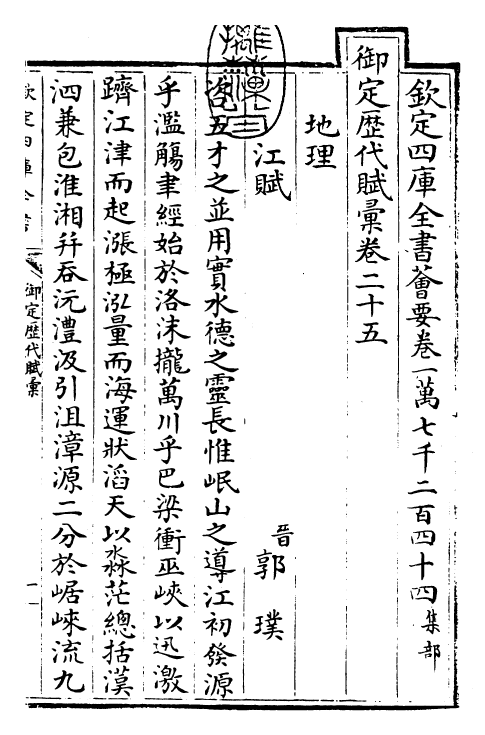 欽定四庫全書薈要卷一萬七千二百四十四集部
御定歷代賦彙卷二十五
地理
江賦
晉郭璞
咨五才之並用實水德之靈長惟岷山之導江初發源
乎濫觴聿經始於洛沬攏萬川乎巴梁衝巫峽以迅激
躋江津而起漲極泓量而海運狀滔天以淼茫總括漢
泗兼包淮湘幷吞沅澧汲引沮漳源二分於崌崍流九
欽定四庫全書
御定歷代賦彙
一